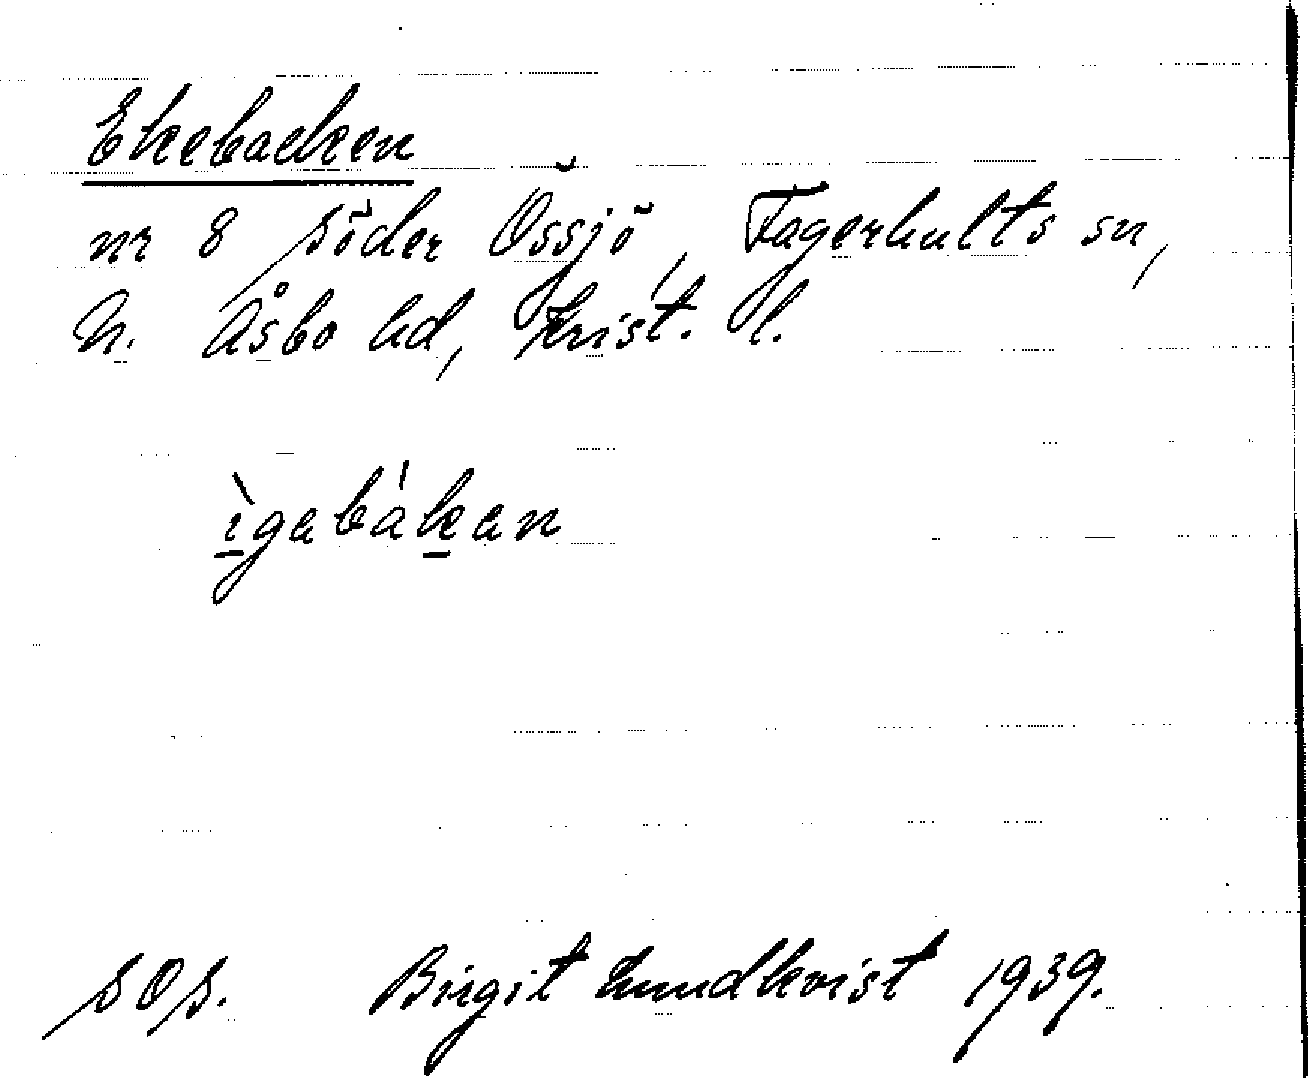 Ekebacken
nr 8 Söder Össjö, Fagerhults sn,
N. Åsbo hd, Krist. l.
ìgabákan
SOS. Birgit Lundkvist 1939.